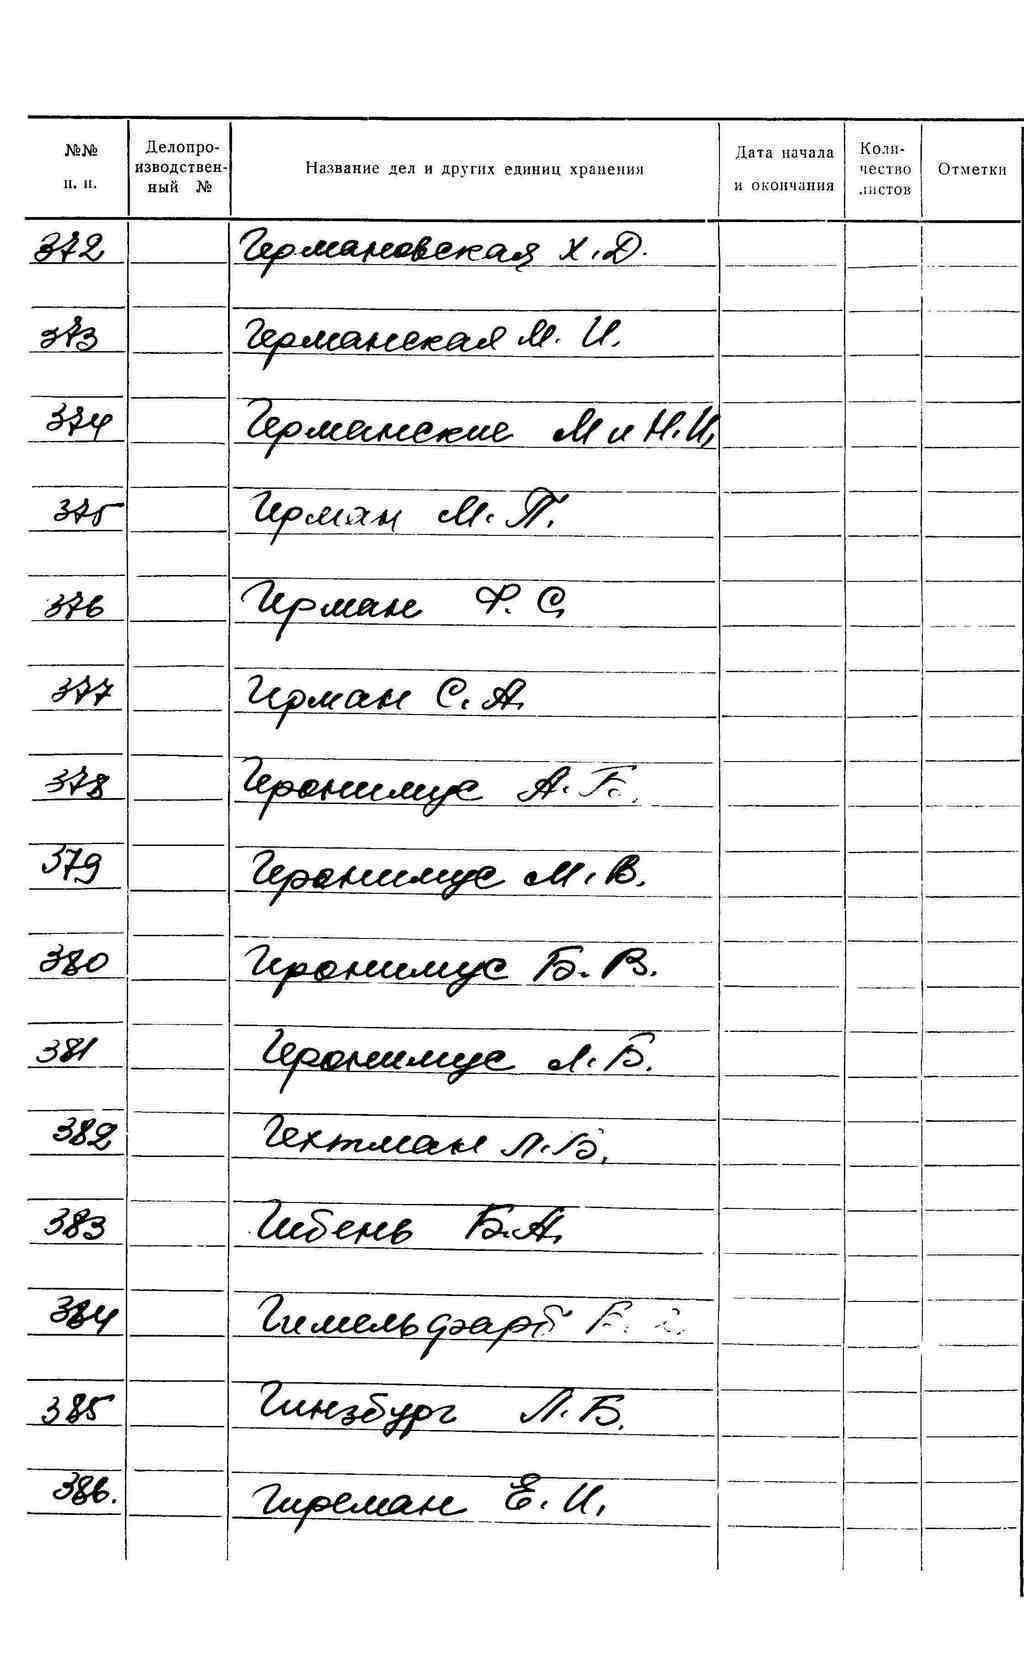 №№ п. п. Делопроизводственный № Название дел и других единиц хранения Дата начала и окончания Количество листов Отметки
372 Германовская Х.Д.
373 Германская М. И.
374 Германские М и Н.И.
375 Герман М. П.
376 Герман Ф. С.
377 Герман С. А.
378 Геронимус А. Б.
379 Геронимус М. В.
380 Геронимус Б. В.
381 Геронимус Л. Б.
382 Гехтман Л. Б.
383 Гибень Б.А.
384 Гимельфарб
385 Гинзбург Л. Б.
386. Гиреман Е. И.